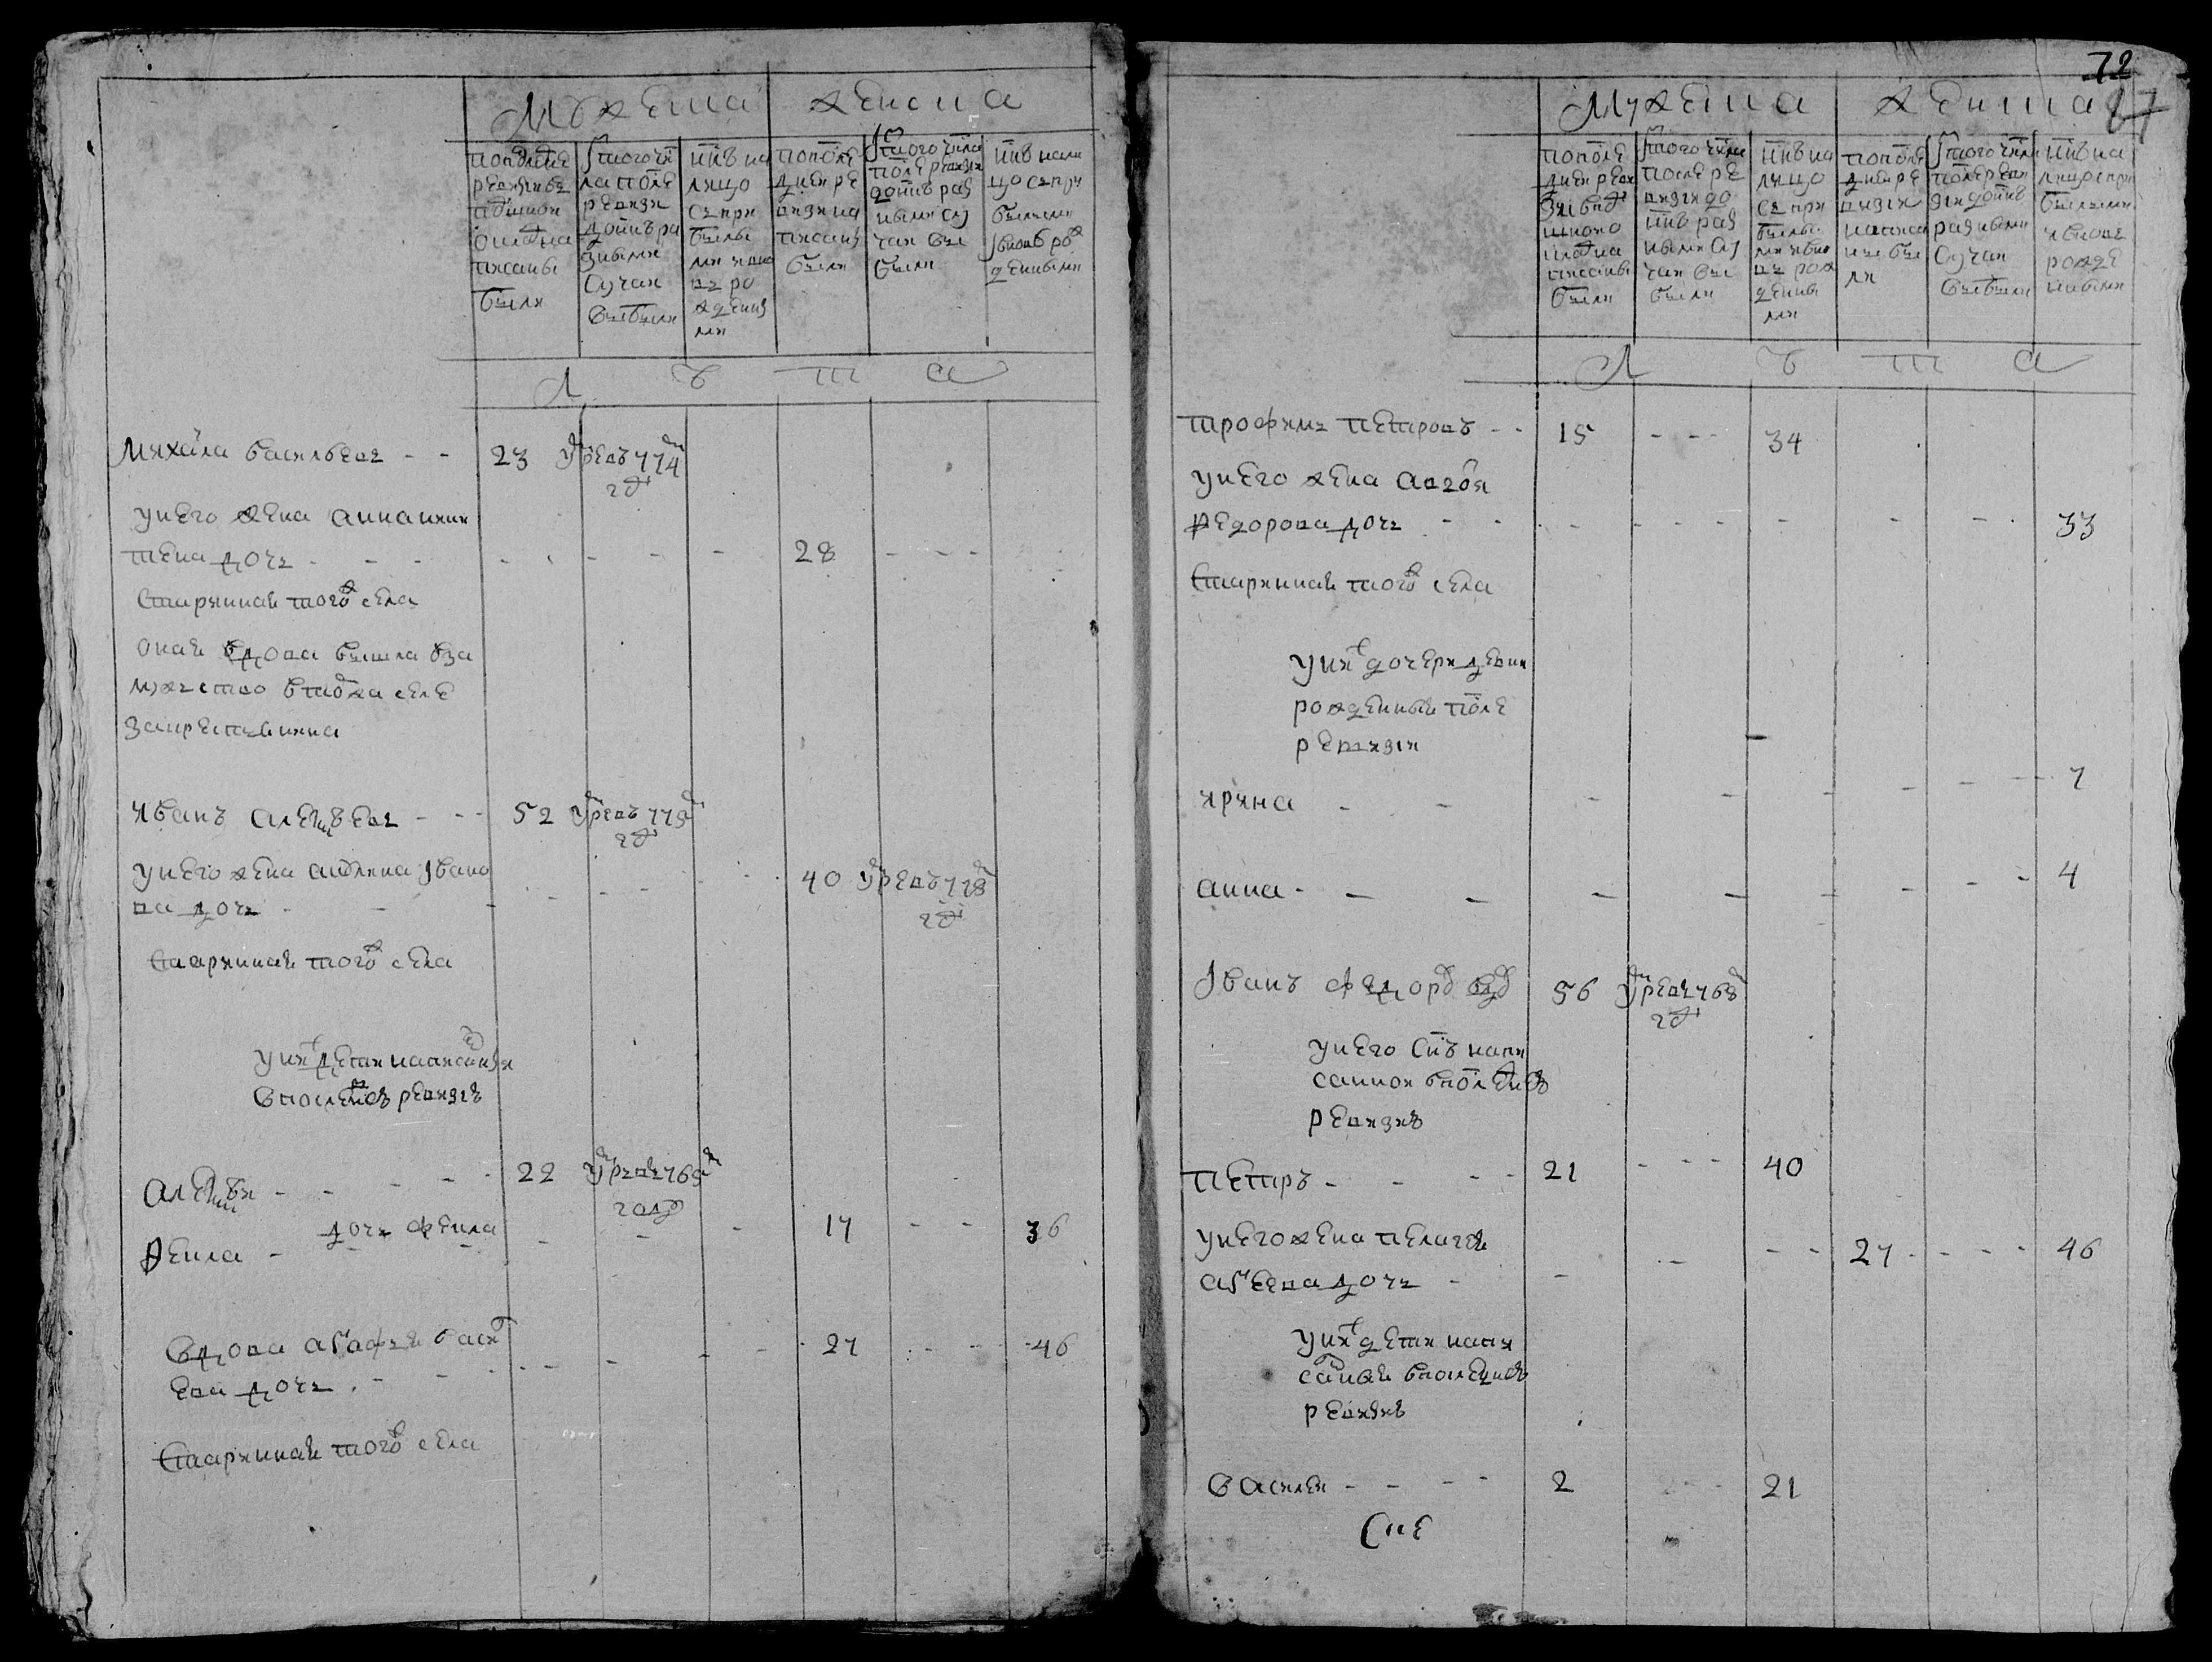 мужеска женска
по последней ревизии в подушном окладе написаны были
ис того числа после ревизии до ныне разными случаи выбыли
ныне налицо с прибылыми и вновь рожденными
по последней ревизии написаны были
ис того числа после ревизии до ныне разными случаи выбыли
ныне налицо с прибылыми и вновь рожденными
л ѣ т а
михаила васильевъ - - 23 умре въ 774м годѣ
у него жена анна никитина дочь - - - 28 - - -
старинная того ж села
оная вдова вышла в замужество в том же селе
иванъ алексѣевъ - - - 52 умре въ 775м годѣ
у него жена Ивано
ва дочь - - - 40 умре въ 778м годѣ
старинная того ж села
у них дети написанныя
в последней ревизиѣ
алексѣи - - - - - 22 умре въ 769м годѣ
дочь фекла
фекла - - - - - - 17 - - 36
вдова агафья васил
ева дочь - - - - 27 - - 46
старинная того ж села
72
87
мужеска женска
по последней ревизии в подушном окладе написаны были
ис того числа после ревизии до ныне разными случаи выбыли
ныне налицо с прибылыми и вновь рожденными
по последней ревизии написаны были
ис того числа после ревизии до ныне разными случаи выбыли
ныне налицо с прибылыми и вновь рожденными
л ѣ т а
трофимъ петровъ - - 15 - - - 34
у него жена авдотя
федорова дочь - - - - - - 33
старинная того ж села
у них дочери девки
рожденныя после
ревизии
ирина - - - - - - 7
анна - - - - - - 4
Иванъ федоров вдов 56 умре въ 768м годѣ
у него сынъ напи
санной в последней
ревизиѣ
петръ - - - - 21 - - - 40
у него жена пелагея
авдеева дочь - - - - - 27 - - - 46
у них дети напи
саныя в последней
ревизиѣ
василей - - - - 2 - - - 21
сне